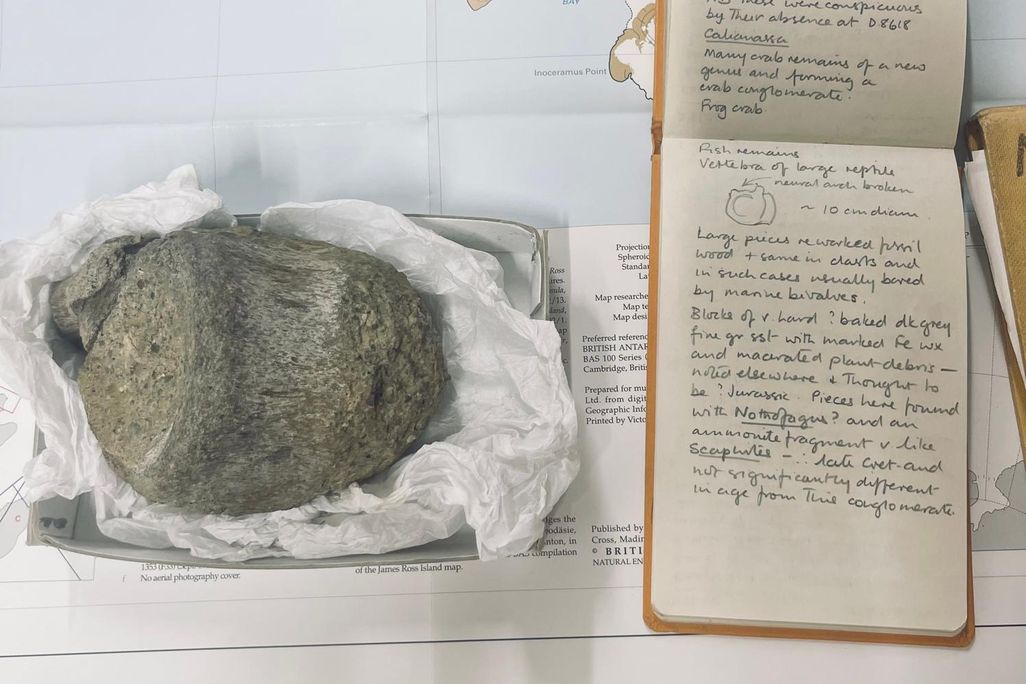 BAY
Inoceramus Point
these were conspicuous
by their absence at D8618
Calianassa
Many crab remains of a new
genus and forming a
crab conglomerate.
Frog crab
Fish remains
Vertebra of large reptile
neural arch broken
~ 10 cm diam.
Large pieces reworked fossil
wood + same in clasts and
in such cases usually bored
by marine bivalves.
Blocks of v. hard ? baked dk grey
fine gr sst with marked Fe wx
and macerated plant debris —
noted elsewhere & thought to
be ? Jurassic. Pieces here found
with Nothofagus? and an
ammonite fragment v. like
Scaphites — ∴ late Cret and
not significantly different
in age from this conglomerate.
Projection
Spheroid
Standard
Map researche
Map te
Map desi
Preferred referenc
BRITISH ANTAR
BAS 100 Series
Cambridge, Briti
Prepared for mu
Ltd. from digit
Geographic Info
Printed by Victo
Ross
Published by
Cross, Madin
© BRITI
NATURAL EN
ges the
odäsie,
nton, in
compilation
of the James Ross Island map.
No aerial photography cover.
C